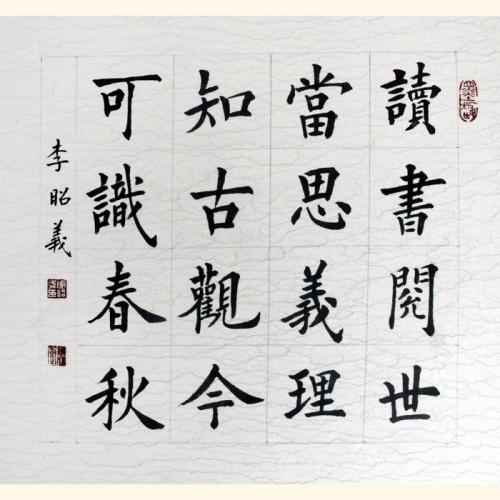 讀書閱世
當思義理
知古觀今
可識春秋
李昭義